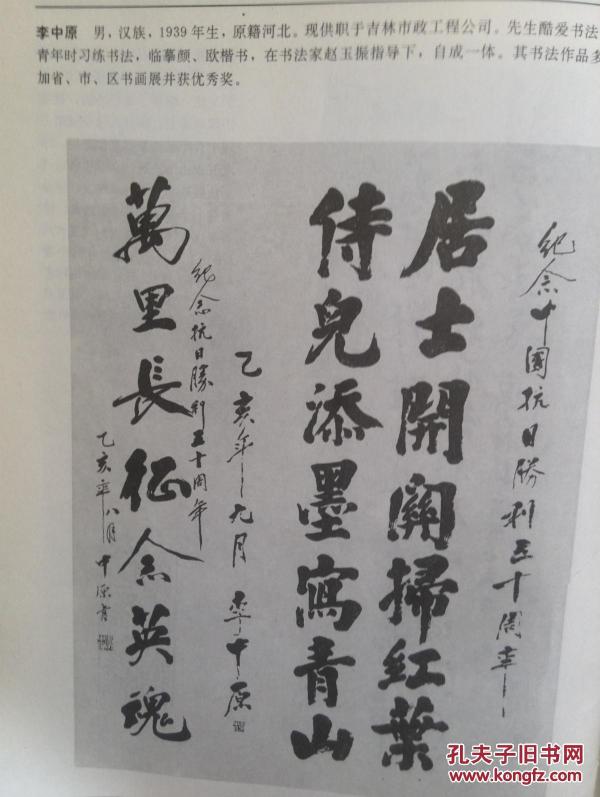 李中原 男，汉族，1939年生，原籍河北。现供职于吉林市政工程公司。先生酷爱书法
青年时习练书法，临摹颜、欧楷书，在书法家赵玉振指导下，自成一体。其书法作品多
加省、市、区书画展并获优秀奖。
紀念中國抗日勝利五十周年
居士開關掃紅葉
侍兒添墨寫青山
乙亥年九月 李中原
紀念抗日勝利五十周年
萬里長征念英魂
乙亥年八月中原書
孔夫子旧书网
www.kongfz.com